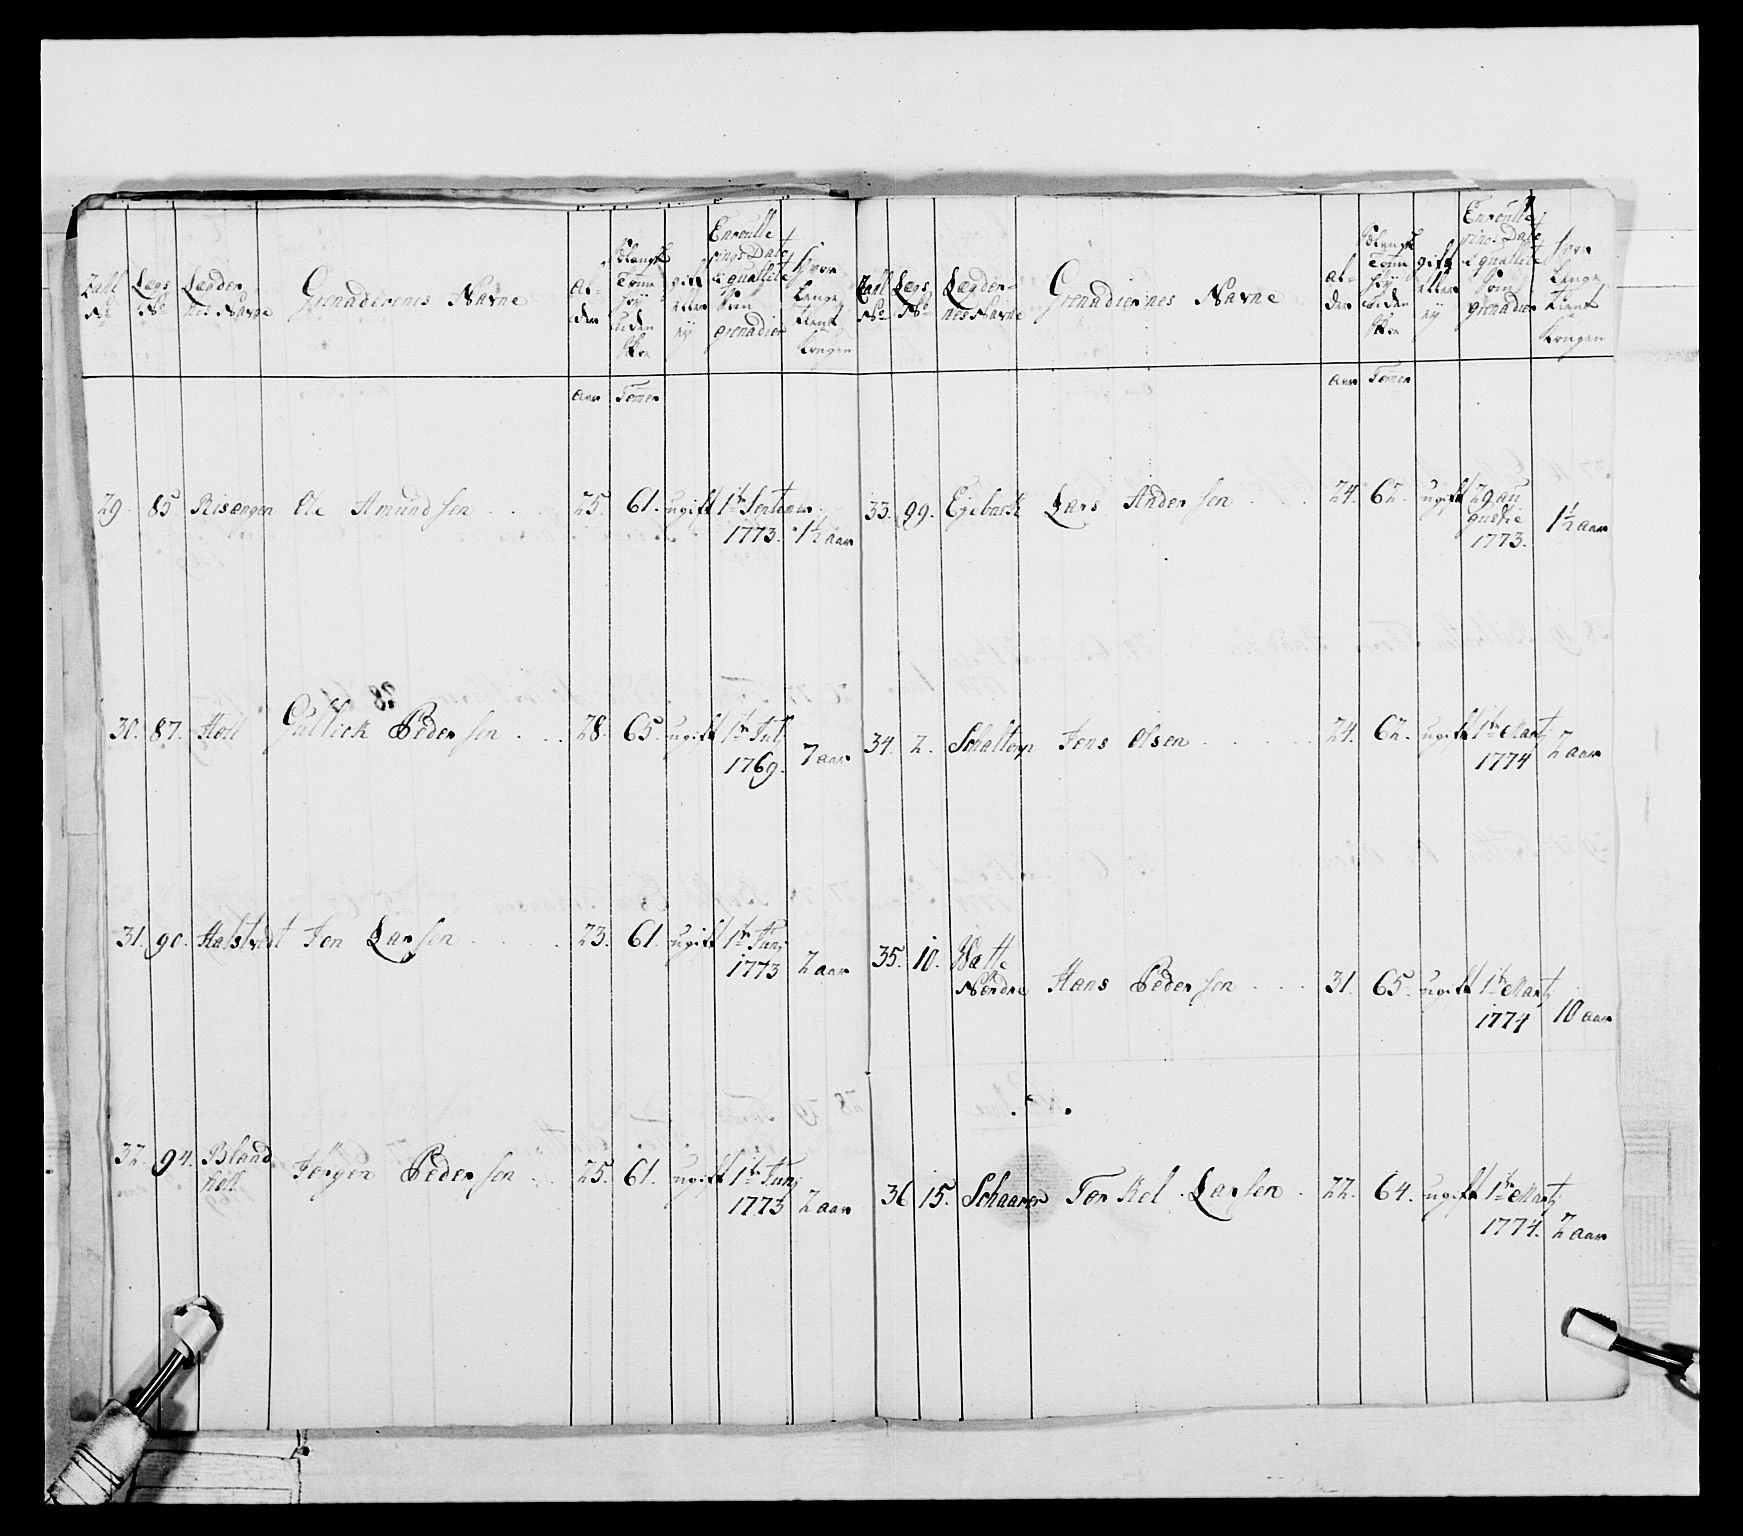 Tall No
Lægs No
Lægder nes Navne
Grenaderenes Navne
al- der
Tomm høy uden Skoe
gift eller ey
Enroulle rings Date i qualite som grenadier
Hvor Lenge tient Kongen
aar Tomer
29. 85 Risengen Ole Amundsen . . . 25. 61. ugift 1te September 1773. 1½ aar
30. 87. Holl Gullick Pedersen . . . 28. 65. ugift 1te Julj 1769. 7 aar
31. 90. Halstvedt Jon Larsen . . . 23. 61. ugift 1te Junj 1773 2 aar
32. 94. Bland Jørgen Pedersen . . 25. 61. ugift 1te Junj 1773 2 aar
Tall No
Lægs No
Lægder- nes Navne
Grenadiernes Navne
al- der
Tomm høy uden Skoe
gift eller ey
Enroulle rings Date i qualite som grenadier
hvor Lenge tient Kongen
aar Tomer
33. 99. Egebach Lars Andersen . . . 24. 62. ugift 29 au gustii 1773. 1½ aar
34. 2. Jens Olsen . . . 24. 62. ugift 1te Martj 1774 2 aar
35. 10. Watte Nordre Hans Pedersen . . . 31. 65. ugift 1te Martj 1774 10 aar
36 15. Schaarer Torkel Larsen . 22. 64. ugift 1te Martj 1774. 2 aar